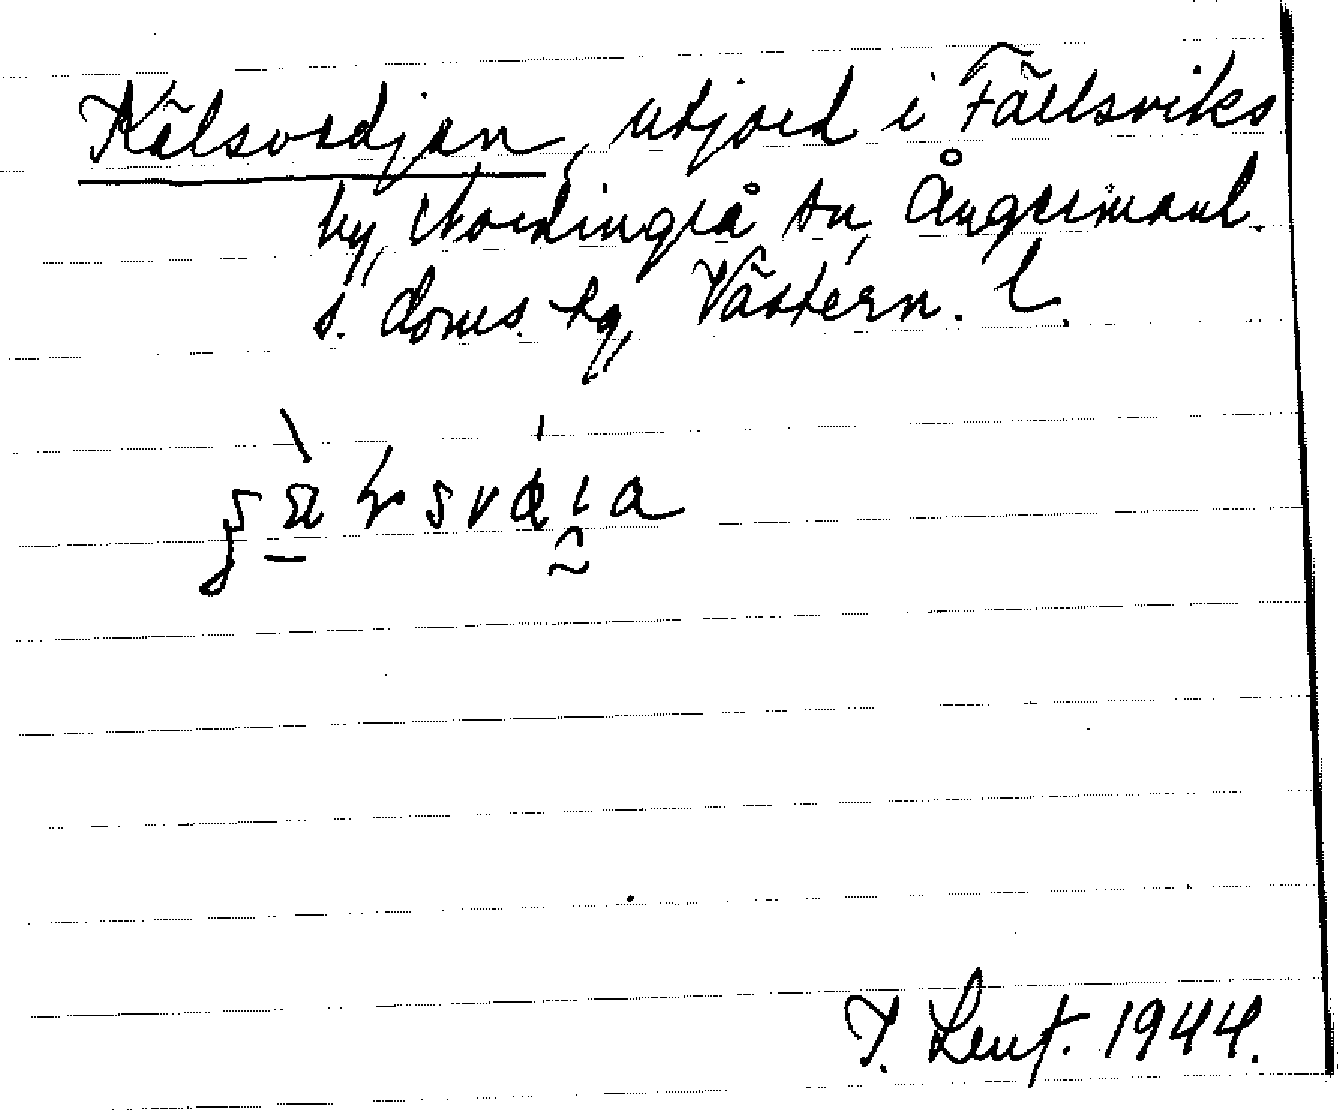 Kälsvedjan, utjord i Fällsviks
by, Nordingrå sn, Ångermanl.
s. doms. hg, Västern. l.
T. Lenf. 1944.